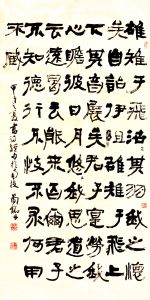 雄雉于飛泄泄其羽我之懷
矣自詒伊阻雄雉于飛上
下其音展矣君子實勞我
心瞻彼日月悠悠我思道之
云遠曷云能來百爾君子
不知德行不忮不求何用
不臧